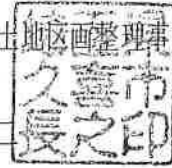 土地区画整理事
久喜市
長之印